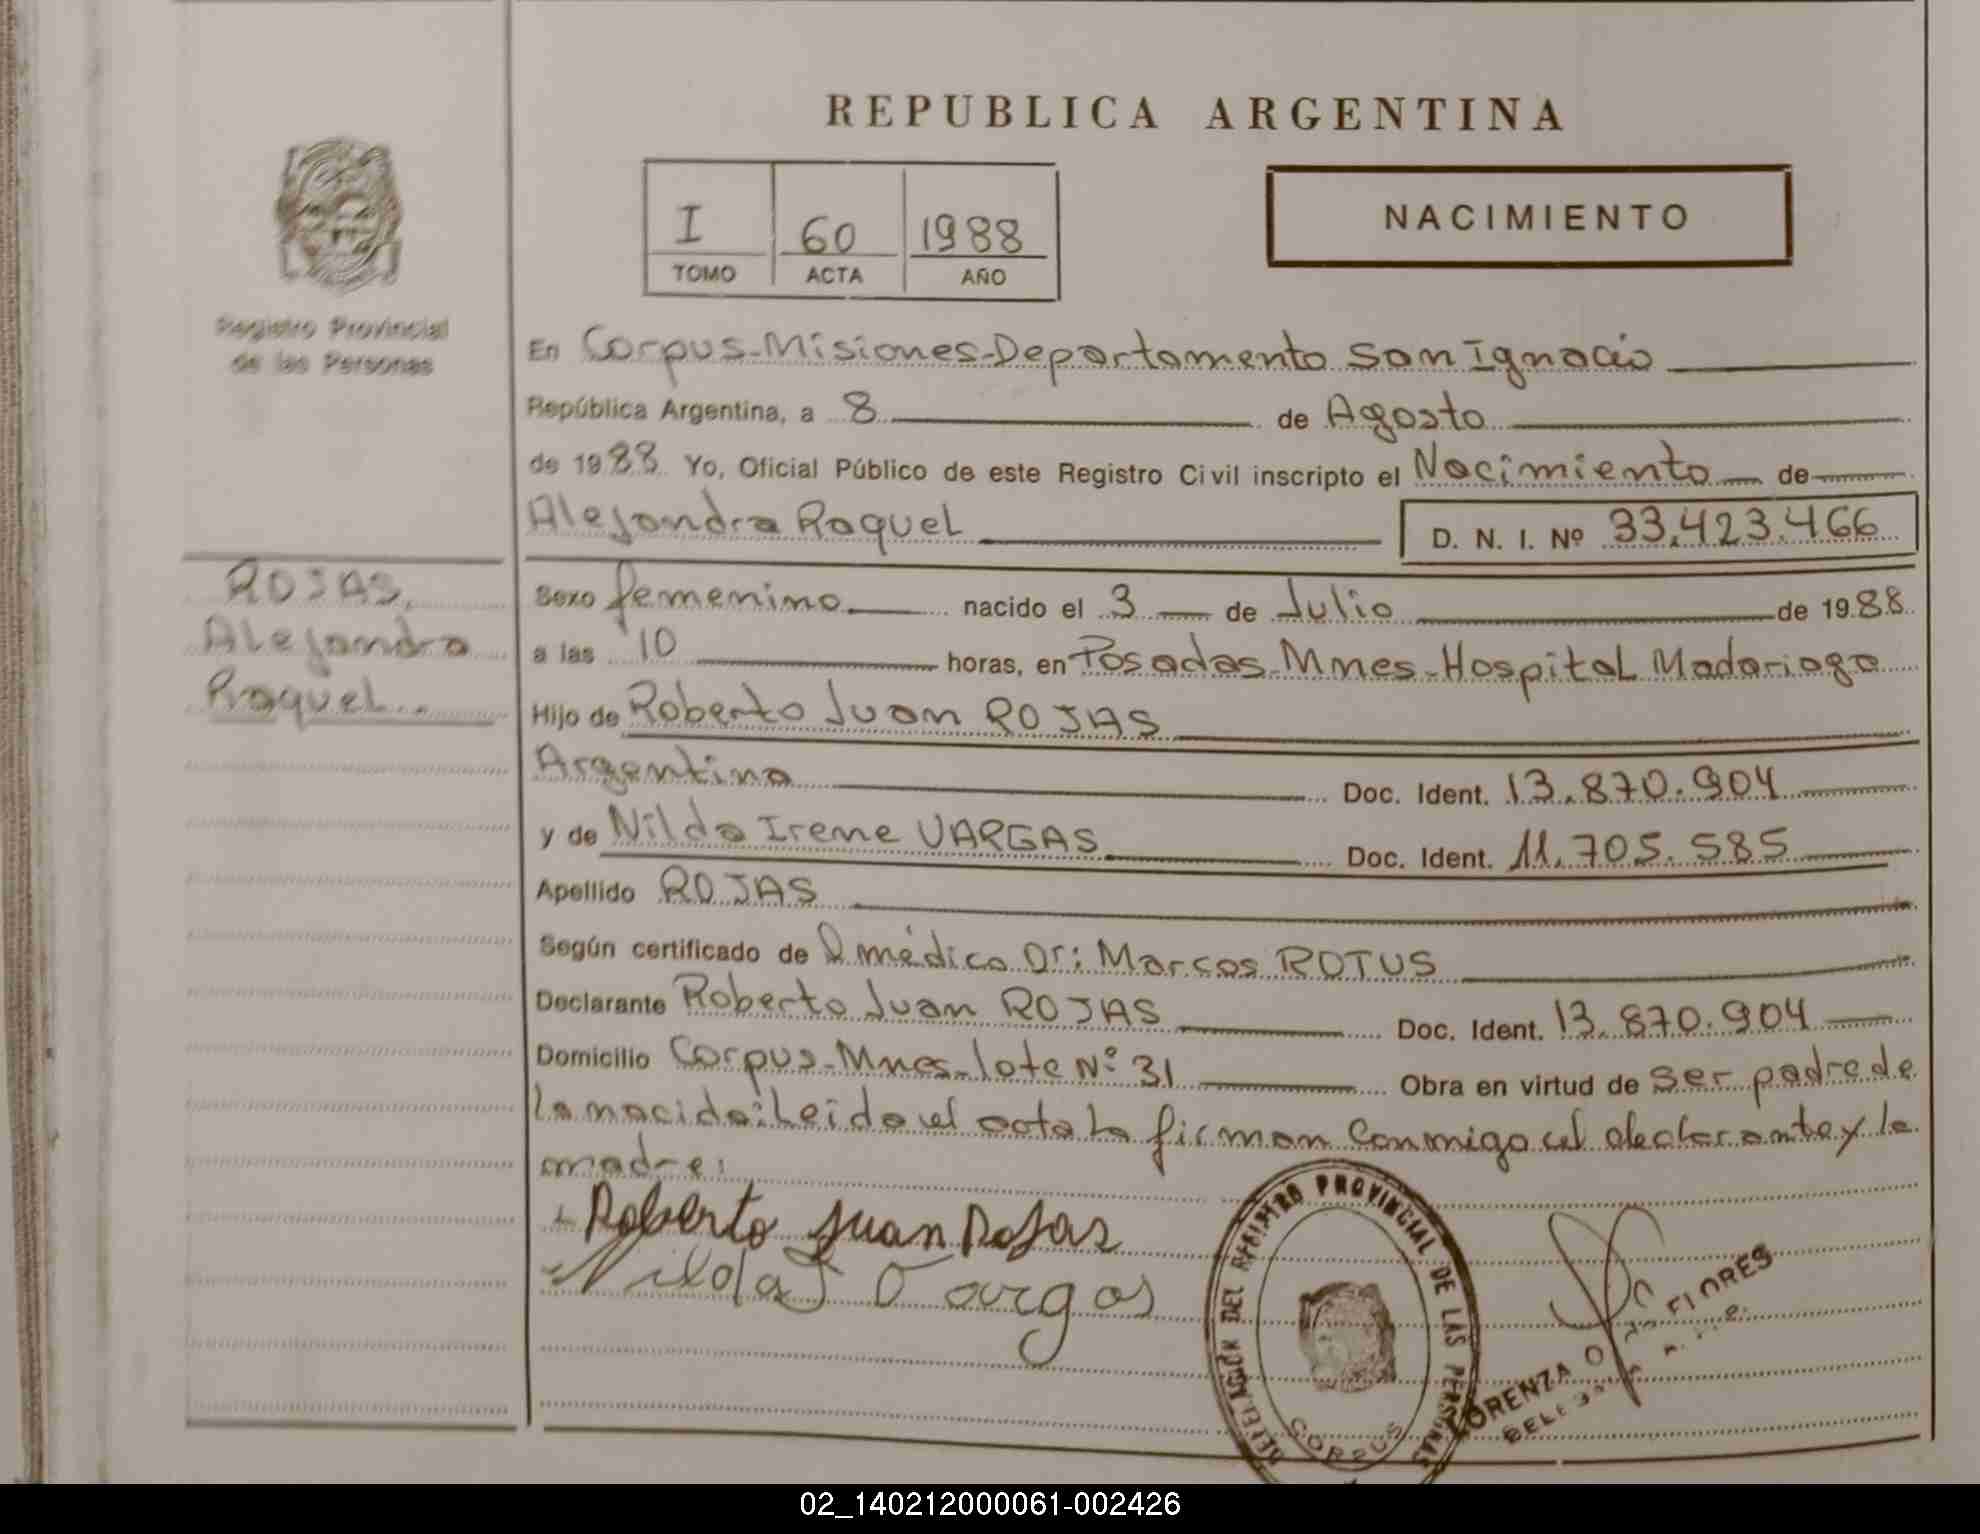 REPUBLICA ARGENTINA
I 60 1988
TOMO ACTA AÑO
NACIMIENTO
Registro Provincial
de las Personas
En Corpus-Misiones-Departamento San Ignacio
República Argentina, a 8 de Agosto
de 1988 Yo, Oficial Público de este Registro Civil inscripto el Nacimiento de
Alejandra Raquel D. N. I. Nº 33.423.466
ROJAS,
Alejandra
Raquel.
Sexo femenino nacido el 3 de Julio de 1988
a las 10 horas, en Posadas-Mnes-Hospital Madariaga
Hijo de Roberto Juan ROJAS
Argentina Doc. Ident. 13.870.904
y de Nilda Irene VARGAS Doc. Ident. 11.705.585
Apellido ROJAS
Según certificado de médico Dr: Marcos ROTUS
Declarante Roberto Juan ROJAS Doc. Ident. 13.870.904
Domicilio Corpus-Mnes-lote Nº 31 Obra en virtud de ser padre de
la nacida: Leida el acta la firman conmigo el declarante y la
madre:
Roberto Juan Rojas
Nilda Vargas
DELEGACIÓN DEL REGISTRO PROVINCIAL DE LAS PERSONAS
CORPUS
LORENZA FLORES
02_140212000061-002426